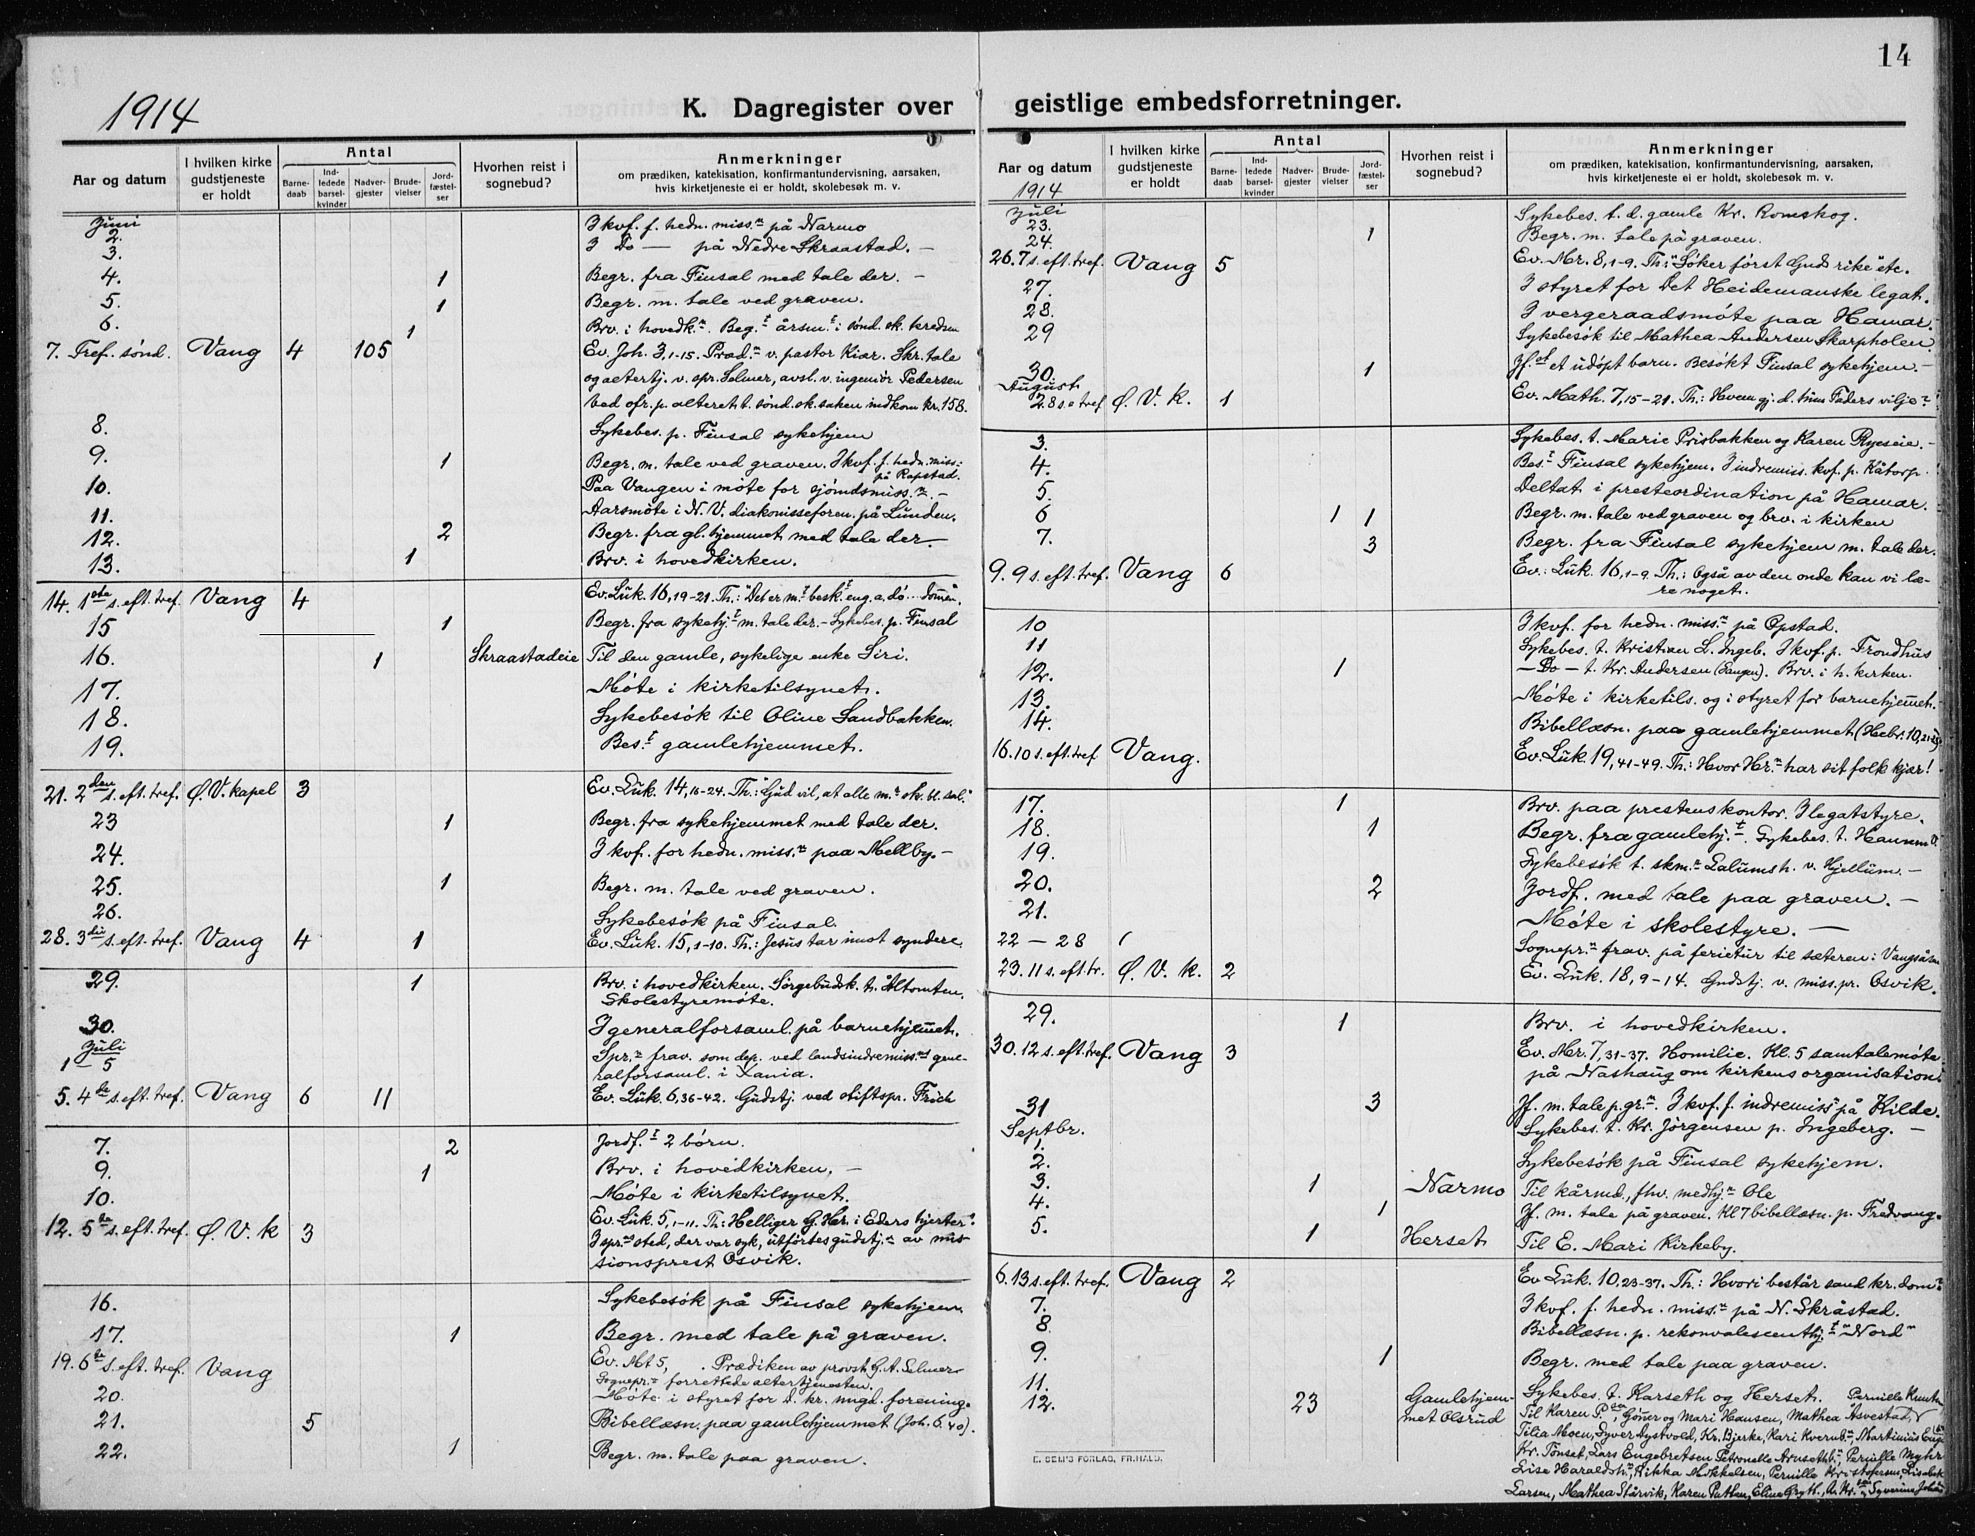 14
1914
K. Dagregister over geistlige embedsforretninger.
Aar og datum
I hvilken kirke gudstjeneste er holdt
Antal
Barnedaab
Indledede barselkvinder
Nadvergjester
Brudevielser
Jordfæstelser
Hvorhen reist i sognebud?
Anmerkninger
om prædiken, katekisation, konfirmantundervisning, aarsaken, hvis kirketjeneste ei er holdt, skolebesøk m. v.
Juni
2. I kvf. f. hedn. miss.n på Narmo
3. I Do — på Nedre Skraastad. —
4. 1 Begr. fra Finsal med tale der. —
5. 1 Begr. m. tale ved graven.
6. 1 Brv. i hovedk.n. Beg.t årsm.t i sønd. sk. kredsen
7. Tref. sønd. Vang 4 105 Ev. Joh. 3,1-15. Præd.n v. pastor Kiær. Skr. tale
og altertj. v. spr. Selmer, avsl. v. ingeniør Pedersen
ved ofr. p. alteret t. sønd. sk. saken indkom kr. 158.
8. Sykebes. p. Finsal sykehjem
9. 1 Begr. m. tale ved graven. I kvf. f. hedn. miss:
på Rapstad.
10. Paa Vangen i møte for sjømdsmiss.n. —
11. Aarsmøte i N. V. diakonisseforen. på Lunden.
12. 2 Begr. fra gl. hjemmet med tale der. —
13. 1 Brv. i hovedkirken.
14. 1ste s. eft. tref. Vang 4 Ev. Luk. 16,19-21. Th.: Det er m.t besk. eng. a. dø... dommen.
15 1 Begr. fra sykehj.t m. tale der. – Sykebes. p. Finsal
16. 1 Skraastadeie Til den gamle, sykelige enke Siri.
17. Møte i kirketilsynet.
18. Sykebesøk til Oline Sandbakken.
19. Bes.t gamlehjemmet.
21. 2den s. eft. tref. Ø. V. kapel 3 Ev. Luk. 14,16-24. Th: Gud vil, at alle m.r sk. bl. sal."
23 1 Begr. fra sykehjemmet med tale der.
24. I kvf. for hedn. miss.n paa Mellby. —
25. 1 Begr. m. tale ved graven.
26. Sykebesøk på Finsal.
28. 3die s. eft. tref. Vang 4 1 Ev. Luk. 15,1-10. Th.: Jesus tar imot syndere.
29. 1 Brv. i hovedkirken. Sørgebudsk. t. Altomten.
Skolestyremøte.
30. I generalforsaml. på barnehjemmet.
Juli
1 – 5 Spr.n frav. som dep. ved landsindremiss.ns gene-
ralforsaml. i Xania.
5. 4de s. eft. tref. Vang 6 11 Ev. Luk. 6,36-42. Gudstj. ved stiftspr. Frich
7. 2 Jordf.t 2 børn.
9. 1 Brv. i hovedkirken, —
10. Møte i kirketilsynet.
12. 5te s. eft. tref. Ø. V. k 3 Ev. Luk. 5,1-11. Th: Helliger G. Her. i Eders hjerter".
I spr.ns sted, der var syk, utførtes gudstj.n av mis-
sionsprest Osvik.
16. Sykebesøk på Finsal sykehjem.
17. 1 Begr. med tale på graven.
19. 6te s. eft. tref. Vang Ev. Mt 5, . Prædiken av provst G. A. Selmer
Sognepr.n forrettede altertjenesten.
20. Møte i styret for d. kr. ungd. forening.
21. 5 Bibellæsn. paa gamlehjemmet (Joh. 6.40).
22. 1 Begr. m. tale paa graven.
Aar og datum
I hvilken kirke gudstjeneste er holdt
Antal
Barnedaab
Indledede barselkvinder
Nadvergjester
Brudevielser
Jordfæstelser
Hvorhen reist i sognebud?
Anmerkninger
om prædiken, katekisation, konfirmantundervisning, aarsaken, hvis kirketjeneste ei er holdt, skolebesøk m. v.
1914
Juli
23. Sykebes. t. d. gamle Kr. Romskog.
24. 1 Begr. m. tale på graven.
26. 7 s. eft. tref. Vang 5 Ev. Mr. 8,1-9. Th: "Søker først Guds rike" etc.
27. I styret for Det Heidemanske legat.
28. I vergeraadsmøte paa Hamar.
29 Sykebesøk til Mathea Andersen Skarpholen.
30. 1 Jf. at et udøpt barn. Besøkt Finsal sykehjem. —
August
2. 8 s. e tref Ø. V. K. 1 Ev. Math. 7,15-21. Th: Hvem gj. d. him Faders vilje?
3. Sykebes. t. Marie Prisbakken og Karen Ryeseie. —
4. Bes.t Finsal sykehjem. I indremiss. kvf. p. Kåtorp
5. Deltat i presteordination på Hamar.
6 1 1 Begr. m. tale ved graven og brv. i kirken
7. 3 Begr. fra Finsal sykehjem m. tale der.
9. 9 s. eft. tref. Vang 6 Ev: Luk. 16,1-9. Th: Også av den onde kan vi læ-
re noget.
10 I kvf. for hedn. miss.n på Opstad.
11 Sykebes. t. Kristian L. Ingeb. I kvf. p. Trondhus
12. 1 — Do — t. Kr. Andersen (Gangen). Brv. i h. kirken.
13. Møte i kirketils. og i styret for barnehjemmet.
14. Bibellæsn. paa gamlehjemmet (Hebr. 10,
16. 10 s. eft. tref Vang. Ev. Luk. 19,41-49. Th: Hvor Hr.n har sit folk kjær!
17. 1 Brv. paa prestens kontor. I legatstyre.
18. 1 Begr. fra gamlehj.t. Sykebes. t.
19. Sykebesøk t. skm.r Lalumsh. v. Hjellum. —
20. 2 Jordf. med tale paa graven. —
21. Møte i skolestyre. —
22 – 28 Sognepr.n frav. på ferietur til sæteren: Vangsåsen
23. 11 s. eft. tr. Ø. V. k. 2 Ev. Luk. 18,9-14. Gudstj. v. miss. pr. Osvik.
29. 1 Brv. i hovedkirken.
30. 12 s. eft. tref. Vang 3 Ev. Mr. 7,31-37. Homilie. Kl. 5 samtalemøte
på Nashaug om kirkens organisation.
31 3 Jf. m. tale p. gr.n. I kvf. f. indremiss på Kilde.
Septbr.
1. Sykebes. t. Kr. Jørgensen p. Ingeberg. —
2. Sykebesøk på Finsal sykehjem.
3. 1 Narmo Til kårmd., fhv. medhj.n Ole
4. 1 Jf. m. tale på graven. Kl 7 bibellæsn. p. Fredvang.
5. 1 Herset Til E. Mari Kirkeby.
6. 13 s. eft. tref. Vang 2 Ev Luk. 10.23-37. Th: Hvori består sand kr. dom?
7. I kvf. f. hedn. miss.n på N. Skråstad.
8. Bibellæsn. p. rekonvalescenthj.t "Nord"
9. 1 Begr. med tale paa graven.
11. Sykebes. t. Karseth og Herset.
12. 23 Gamlehjem-
met Olsrud
Pernille Knuts
Til Karen P.sen, Gøner og Mari Hansen, Mathea Åsvestad,
Tilia Moen, Syver Aystvold, Kr. Bjerke, Kari Kvernb., Martinius Eng
Kr. Tønset, Lars Engebretsen Petronelle Aruseth, Pernille Myhr
Lise Haralds, Rikka Mikkelsen, Pernille Kristofersen, Lisabet
Larsen, Mathea Stårvik, Karen Putten, Eline Gryth., Syverine Johan
E. SEM'S FORLAG, FR.HALD.